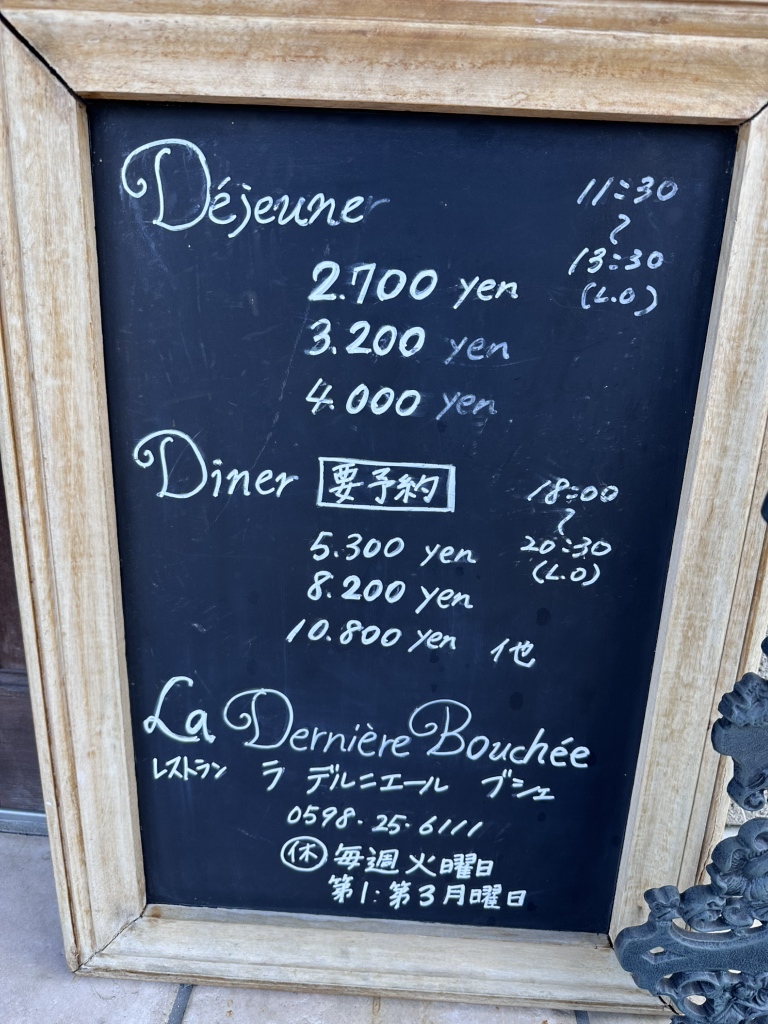 Déjeuner 11:30
〜
13:30
(L.O)
2.700 yen
3.200 yen
4.000 yen
Diner 要予約 18:00
〜
20:30
(L.O)
5.300 yen
8.200 yen
10.800 yen 他
La Dernière Bouchée
レストラン ラ デルニエール ブシェ
0598-25-6111
休 毎週火曜日
第1:第3月曜日